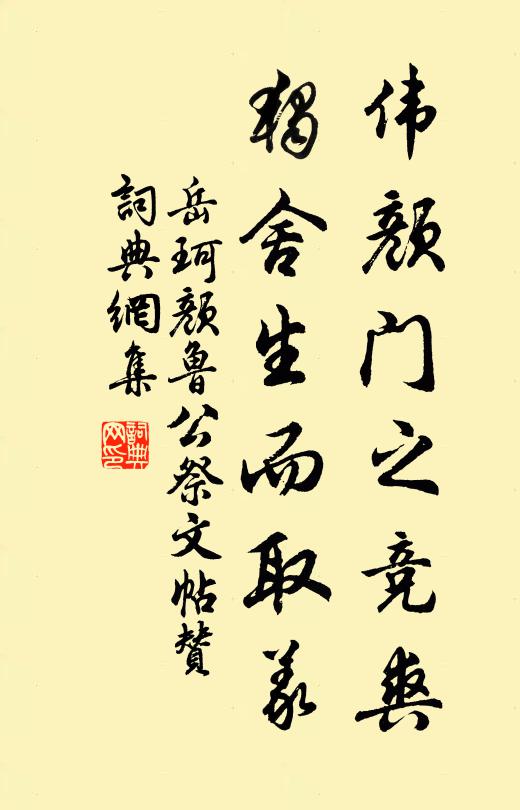 伟颜门之竞爽
獨舍生而取義
岳珂颜魯公祭文帖贊
詞典網集
詞典网印